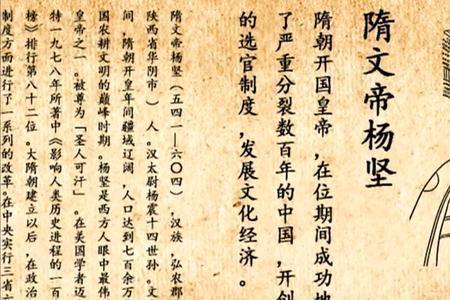 隋文帝杨坚
隋朝开国皇帝，在位期间成功地
了严重分裂数百年的中国，开创
的选官制度，发展文化经济。
隋文帝杨坚（五四一—六〇四），汉族，弘农郡
陕西省华阴市）人。汉太尉杨震十四世孙。文
间，隋朝开皇年间疆域辽阔，人口达到七百余万
国农耕文明的巅峰时期。杨坚是西方人眼中最伟
皇帝之一。被尊为「圣人可汗」。在美国学者迈
特一九七八年所著中《影响人类历史进程的一百
榜》排行第八十二位。大隋朝建立以后，在政治
制度方面进行了一系列的改革。在中央实行三省六